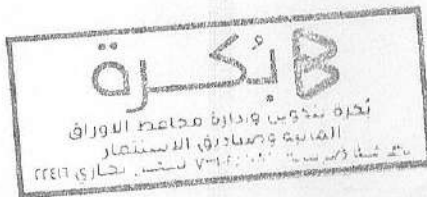 بُكرة B
بُكرة بتكوين وإدارة محافظ الاوراق
المالية وصناديق الاستثمار
سجل تجاري ٢٢٤١٦